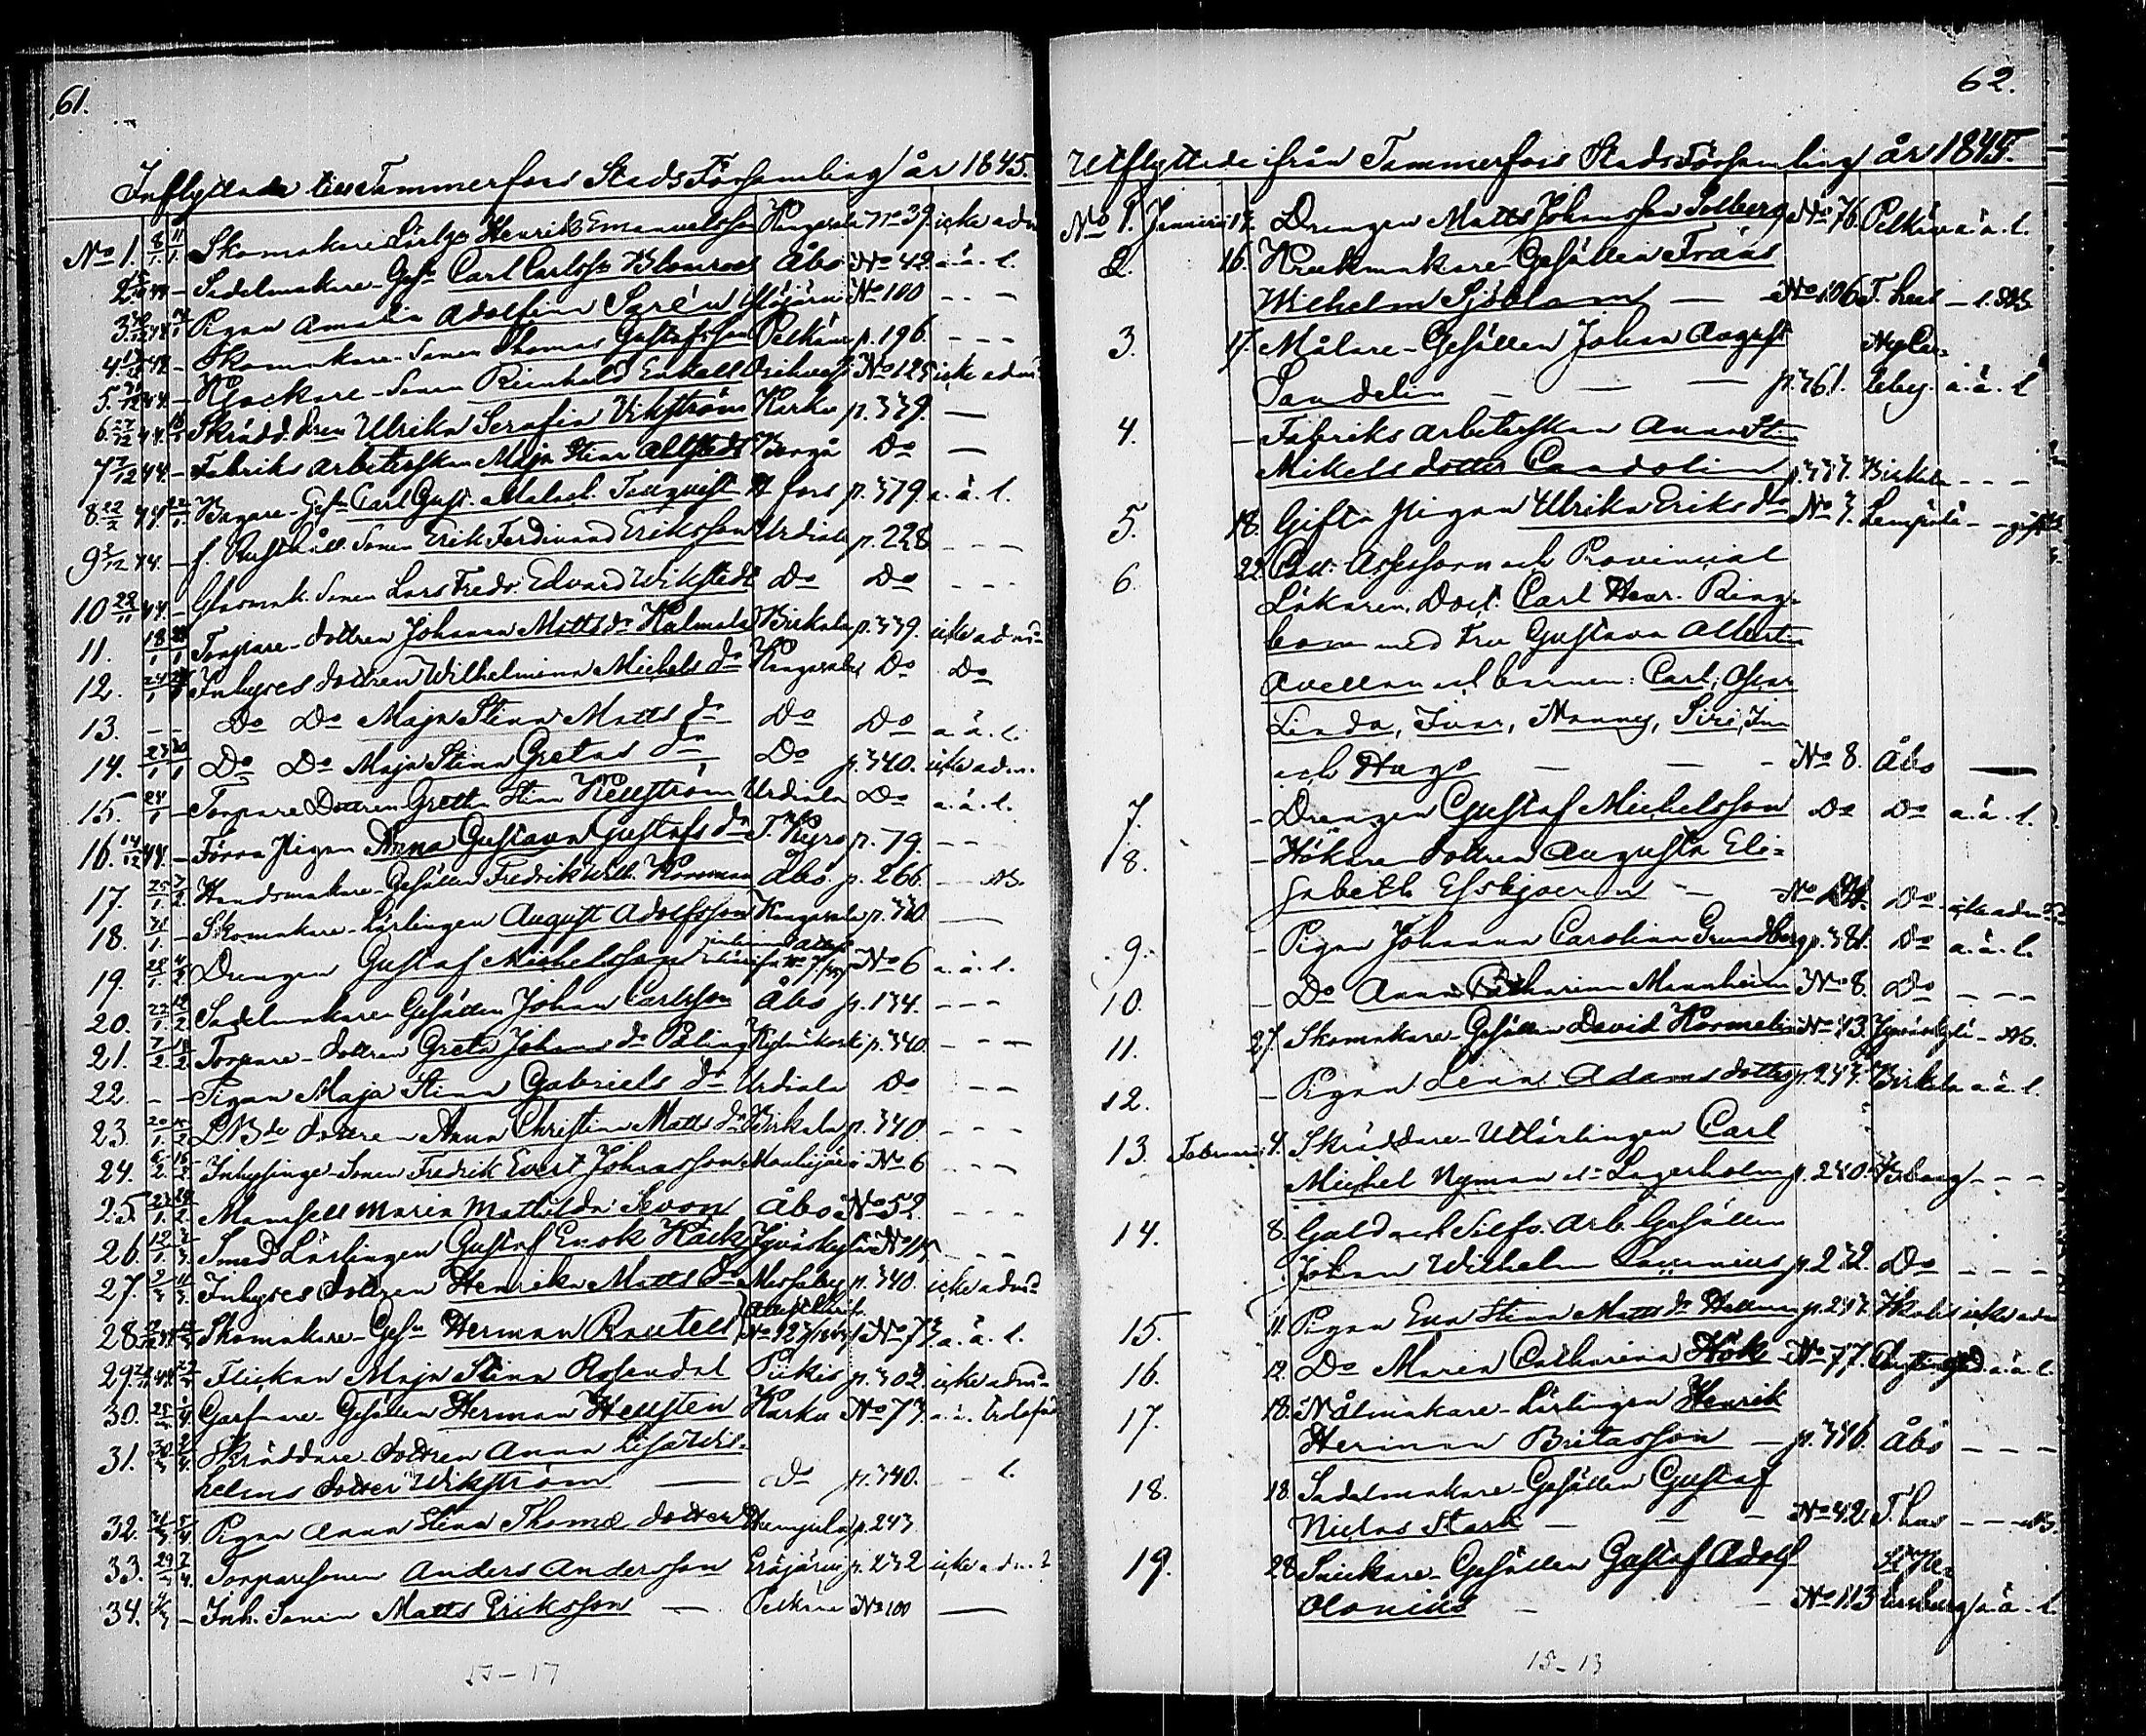 61.
Inflyttade till Tammerfors Stads Församling år 1845.
No 1. 8/1 11/1 Skomakare Lärlgn Henrik Emanuelsson Kangasala No 39. icke adm
2. Sadelmakare-Gesn Carl Carlsson Blomroos Åbo No 42. a.ä.l.
3. Pigan Amalia Adolfina Serén No 100 - - -
4. Skomakare-Sonen Thomas Gustafsson Pelkäne p.196. - - -
5. Klockare-Sonen Reinhold Enkell No 125 icke adm
6. 27/12 44. Skrädd. dren Ulrika Serafia Vikström Karku p.339. —
7 7/12 44. - Fabriks arbeterskan Maja Stina Ahlstedt Borgå Do —
8. 22/2 44. Bagare-Gesn Carl Gust. Malach. Tenquist H fors p.379. a.ä.l.
9 44. - f. Rusthåll. Sonen Erik Ferdinand Eriksson Urdiala p.228 - - -
10 29/11 44. - Glasmak. Sonen Lars Fredr. Edvard Wikstedt Do Do - - -
11. 18/1 Torpare-dottren Johanna Matts dr Halmala Birkala p.339. icke adm
12. 24/1 Inhyses dottren Wilhelmina Michels dr Kangasala Do Do
13. - - Do Do Maja Stina Matts dr Do Do a.ä.l.
14. 23/1 Do Do Maja Stina Gretas dr Do p.340. icke adm.
15. 24/1 - Torpare Dottren Greta Stina Hellström Urdiala Do a.ä.l.
16. 14/12 44. - Förra Pigan Anna Gustava Gustafs dr T. Kyro p.79. - - -
17. 25/1 7/2 Handsmakare-Gesällen Fredrik Wilh. Åbo p.266. - - NB.
18. 31/1. - Skomakare-Lärlingen August Adolfsson Kangasala p.330. —
19. 28/1. 4/2 Drengen Gustaf Michelsson No 6 a.ä.l.
20. 22/1. 12/2 Sadelmakare Gesällen Johan Carlsson Åbo p.134. - - -
21. 7/2. 18/2 Torpare-dottren Greta Johans dr Päling p.340. - - -
22. - - Pigan Maja Stina Gabriels dr Urdiala Do - -
23. 20/1. Dottren Anna Christina Matts dr Birkala p.340. - - -
24. 6/2. 15/2 Inhysinge-Sonen Fredrik Evert Johansson Mouhijärvi No 6 - - -
25. 23/1. 24/2. Mamsell Maria Mathilda Sevon Åbo No 52. - - -
26. 12/1. 3/3. Smed Lärlingen Gustaf Enok Häck Jyväskylä No 15 - - -
27. 9/3 11/3. Inhyses dottren Henrika Matts dr Messuby p.340. icke adm
28. Skomakare-Gesn Herman Rautell No 123/1844 No 73 a.ä.l.
29. Flickan Maja Stina Rosendal Piikis p.302. icke adm
30. 25/3 1/4. Garfvare-Gesällen Herman Hellsten Karku No 73. a.ä.
31. 30/3 2/4. Skräddare dottren Anna Lisa Wil-
helms dotter Wikström — Do p.340. - l.
32. 31/3 5/4 Pigan Anna Stina Thomæ dotter Hemjula p.243
33. 29/3 7/4. Torparesonen Anders Andersson Eräjärvi p.232 icke adm.
34. - Inh. Sonen Matts Eriksson — Pelkäne No 100 —
17 - 17
62.
Utflyttade ifrån Tammerfors Stads Församling år 1845.
No 1. Januarii 12. Drengen Matts Johansson Solberg No 76. Pelkäne a.ä.l.
2. 16. Krukmakare Gesällen Frans
Wilhelm Sjöblom — No 106 T. hus - l. NB
3. 17. Målare-Gesällen Johan August
Sandelin — — p.361. a.ä.l
4. - Fabriks arbeterskan Anna Stina
Mikels dotter Candolin p.337. Birkala - - -
5. 18. Gifta Pigan Ulrika Eriks dr No 7. Lempäälä - -
6. 22. Coll. Assessorn och Provincial
Läkaren, Doct. Carl Henr. Ring-
bom med Fru Gustava Albertina
Avellan och barnen: Carl, Oscar
Linda, Ivar, Nanny, Siri,
och Hugo — — - No 8. Åbo —
7. - Drengen Gustaf Michelsson Do Do a.ä.l.
8. - Hökare-dottren Augusta Eli-
sabeth Essbjoern — No Do icke adm
9. - Pigan Johanna Carolina Grundberg p.381. Do a.ä.l.
10. - Do Anna Catharina Mannheim No 8. Do - - -
11. 27. Skomakare-Gesällen David Hormelin No 13. Jyväskylä - NB.
12. - Pigan Lena Adams dotter p.237. Birkala a.ä.l.
13. Februarii 4. Skräddare-Utlärlingen Carl
Michel Nyman el. Lagerholm p.240. - - -
14. 8. Guld och Silfv. Arb. Gesällen
Johan Wilhelm Laurenius p.232. Do - - -
15. 11. Pigan Eva Stina Matts dr Hellman p.217. icke adm
16. 12. Do Maria Catharina Hök No 77. a.ä.l.
17. 18. Nålmakare-Lärlingen Henrik
Herman Britasson — p.316. Åbo - - -
18. 18. Sadelmakare-Gesällen Gustaf
Niclas Stark — — No 42. T. hus - - - NB.
19. 28. Snickare-Gesällen Gustaf Adolf
Olonius — — No 113 a.ä.l.
15 - 13